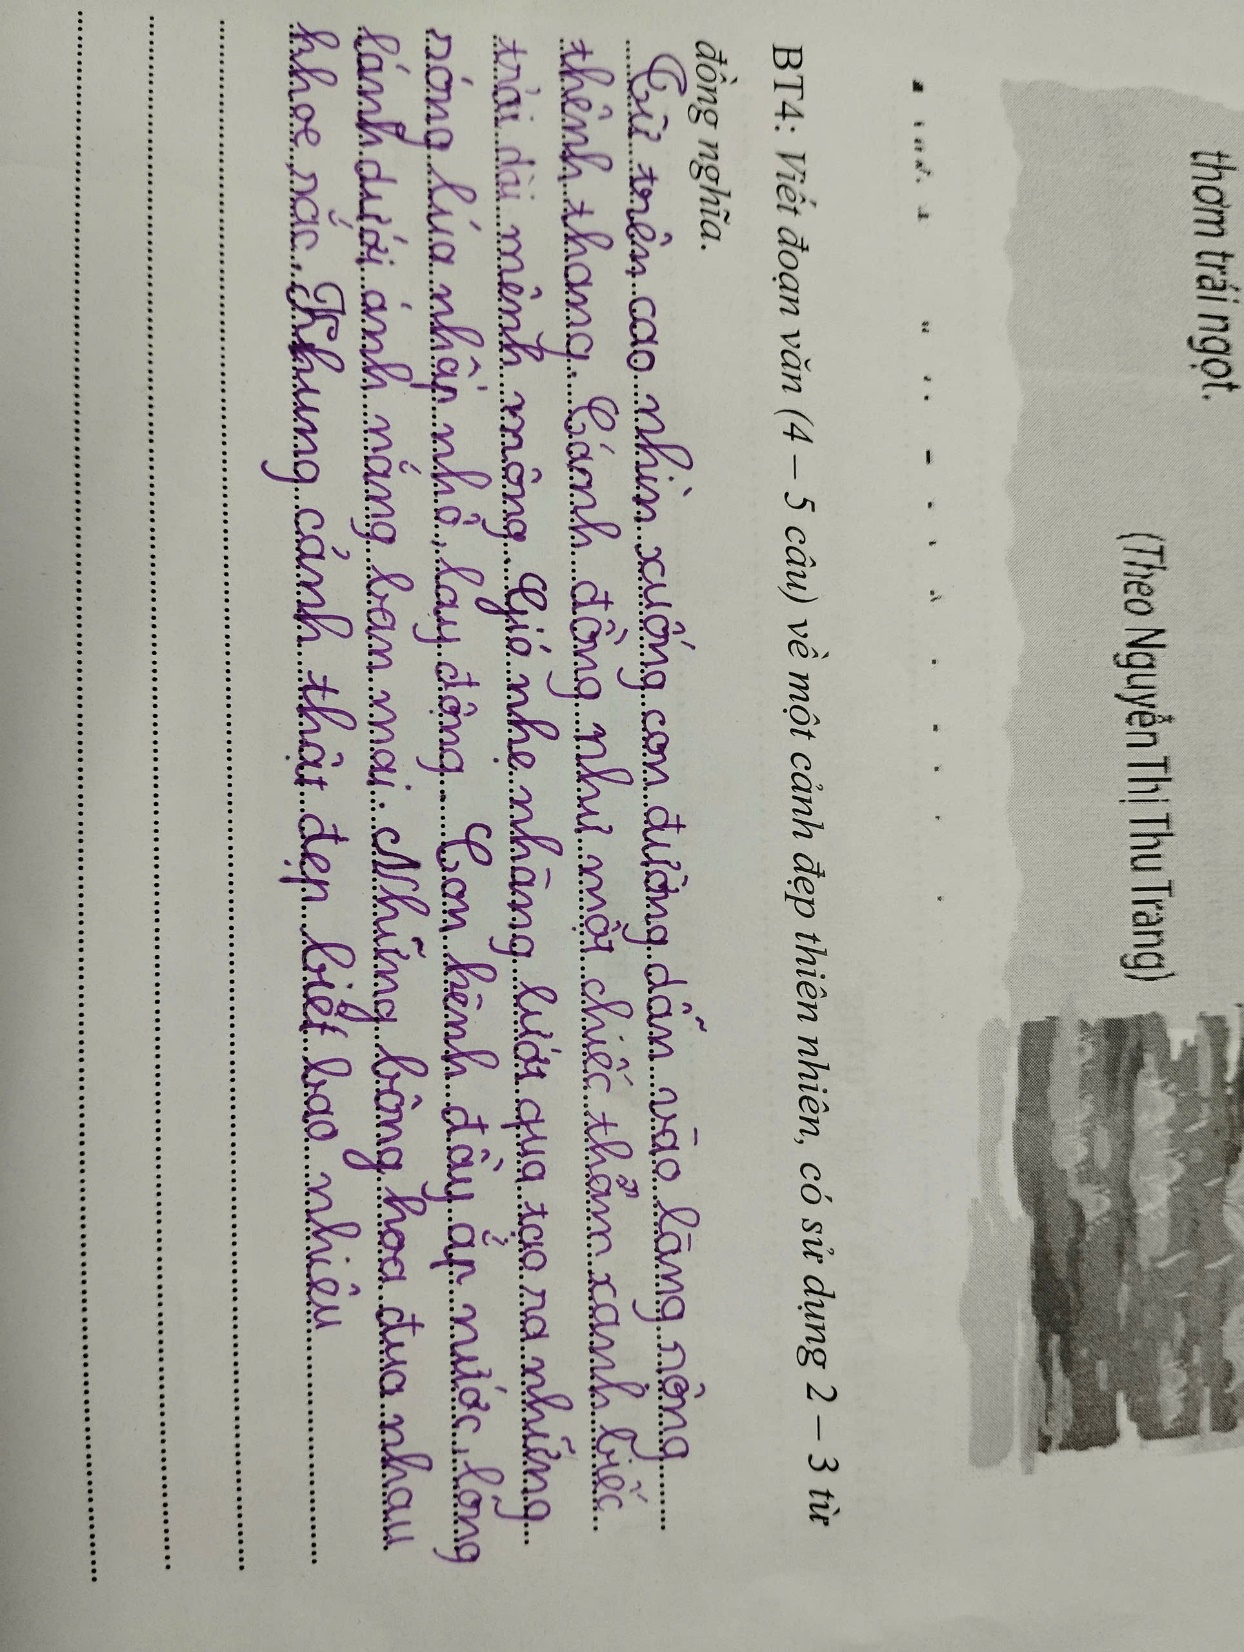 thơm trái ngọt.
(Theo Nguyễn Thị Thu Trang)
BT4: Viết đoạn văn (4 – 5 câu) về một cảnh đẹp thiên nhiên, có sử dụng 2 – 3 từ
đồng nghĩa.
Từ trên cao nhìn xuống con đường dẫn vào làng rộng
thênh thang. Cánh đồng như một chiếc thảm xanh biếc
trải dài mênh mông. Gió nhẹ nhàng lướt qua tạo ra những
sóng lúa nhấp nhô, lay động. Con kênh đầy ắp nước, lóng
lánh dưới ánh nắng ban mai. Những bông hoa đua nhau
khoe sắc. Khung cảnh thật đẹp biết bao nhiêu